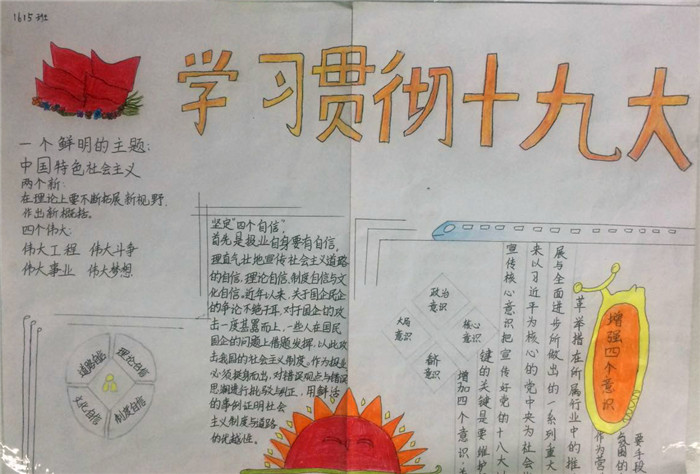 1615班
学习贯彻十九大
一个鲜明的主题:
中国特色社会主义
两个新:
在理论上要不断拓展新视野,
作出新概括。
四个伟大:
伟大工程 伟大斗争
伟大事业 伟大梦想
道路自信
理论自信
文化自信
制度自信
坚定"四个自信"。
首先是报业自身要有自信。
理直气壮地宣传社会主义道路
的自信,理论自信,制度自信与文
化自信。近年以来,关于国企民企
的争论不绝于耳,对于国企的攻
击一度甚嚣而上,一些人在国民
国企的问题上借题发挥,以此攻
击我国的社会主义制度。作为报业
必须挺身而出,对错误观点与错误
思潮进行批驳与纠正,用鲜活
的事例证明社会
主义制度与道路
的优越性。
政治意识
大局意识
核心意识
看齐意识
增强四个意识
革举措在所属行业中的推
展与全面进步所做出的一系列重大
来以习近平为核心的党中央为社会
宣传核心意识把宣传好党的十八大
键的关键是要维护
增加四个意识
要手段
氛围的
作为营